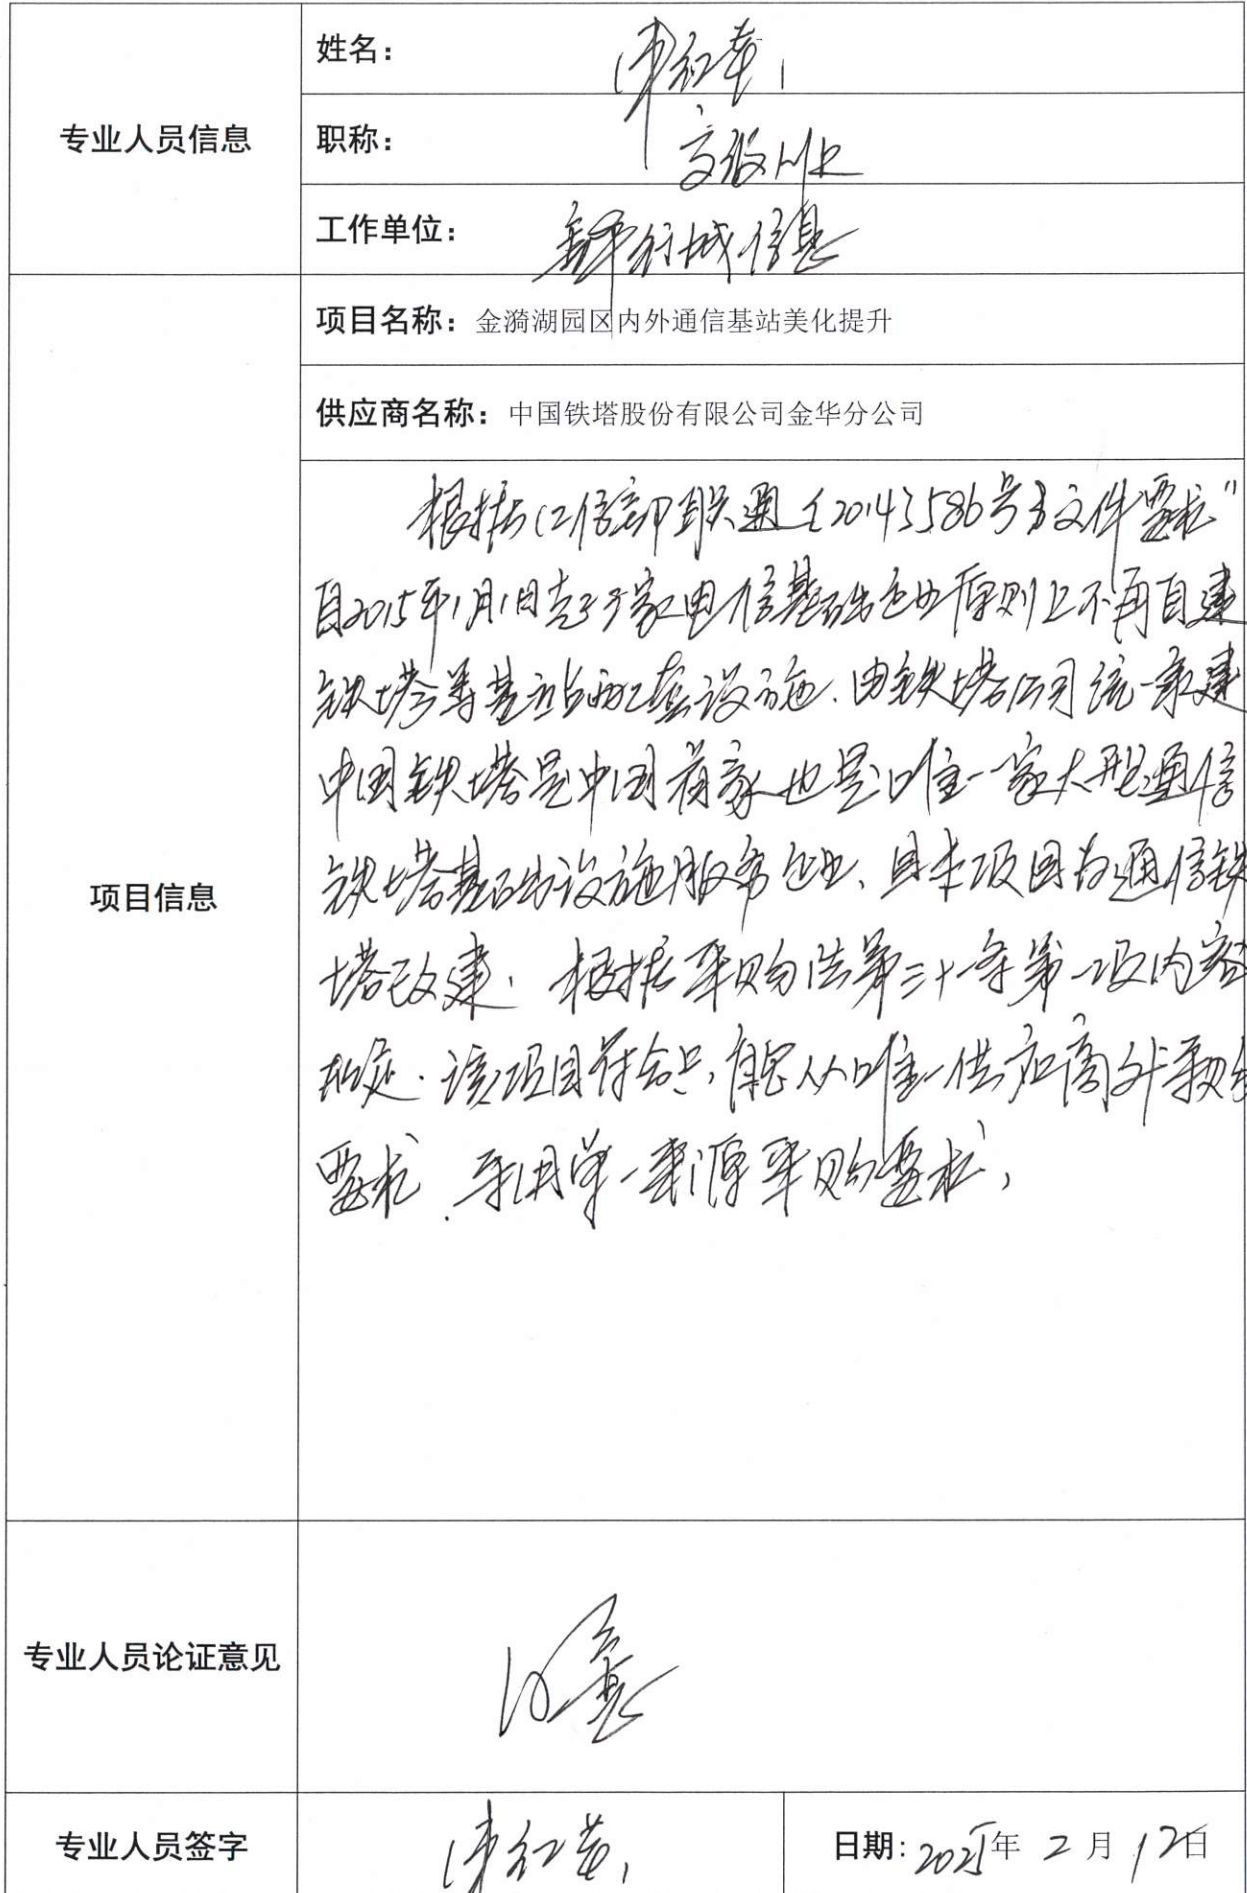 专业人员信息
姓名：
职称：
高级
工作单位：
信息
项目信息
项目名称：金漪湖园区内外通信基站美化提升
供应商名称：中国铁塔股份有限公司金华分公司
根据工信部联通〔2014〕586号文件要求"
自2015年1月1日起三家电信基础企业原则上不再自建
铁塔等基站配套设施．由铁塔公司统一承建
中国铁塔是中国首家也是唯一一家大型通信
铁塔基础设施服务企业、且本项目为通信铁
塔改建．根据采购法第三十一条第一项内容
规定．该项目符合只能从唯一供应商处采购
要求．采用单一来源采购要求，
专业人员论证意见
同意
专业人员签字
日期：2025年2月12日